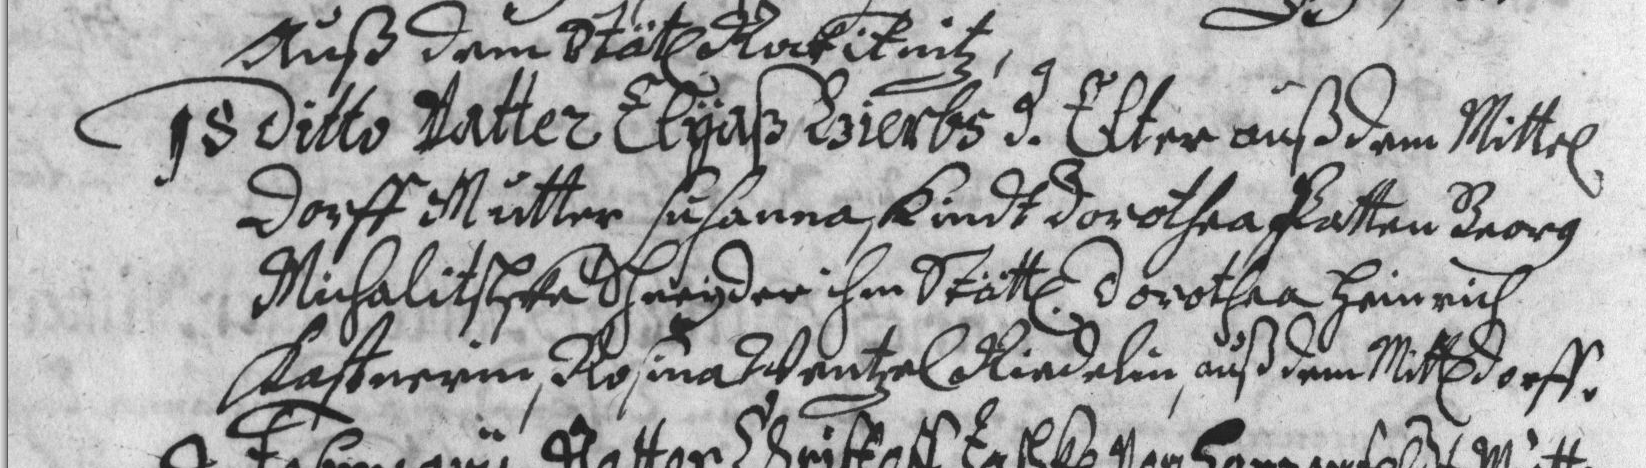 Auß dem Stätl Rokitnitz,
18 Ditto Vatter Elÿaß Zierbs d. Elter auß dem Mittel
Dorff Mutter Susanna, Kindt Dorothea Patten Georg
Michalitschke Schneyder ihm Stättl. Dorothea Heinrich
Kastnerin, Rosina Wentzel Riedelin, auß dem Mittldorff.
Februarii Vatter Christoff